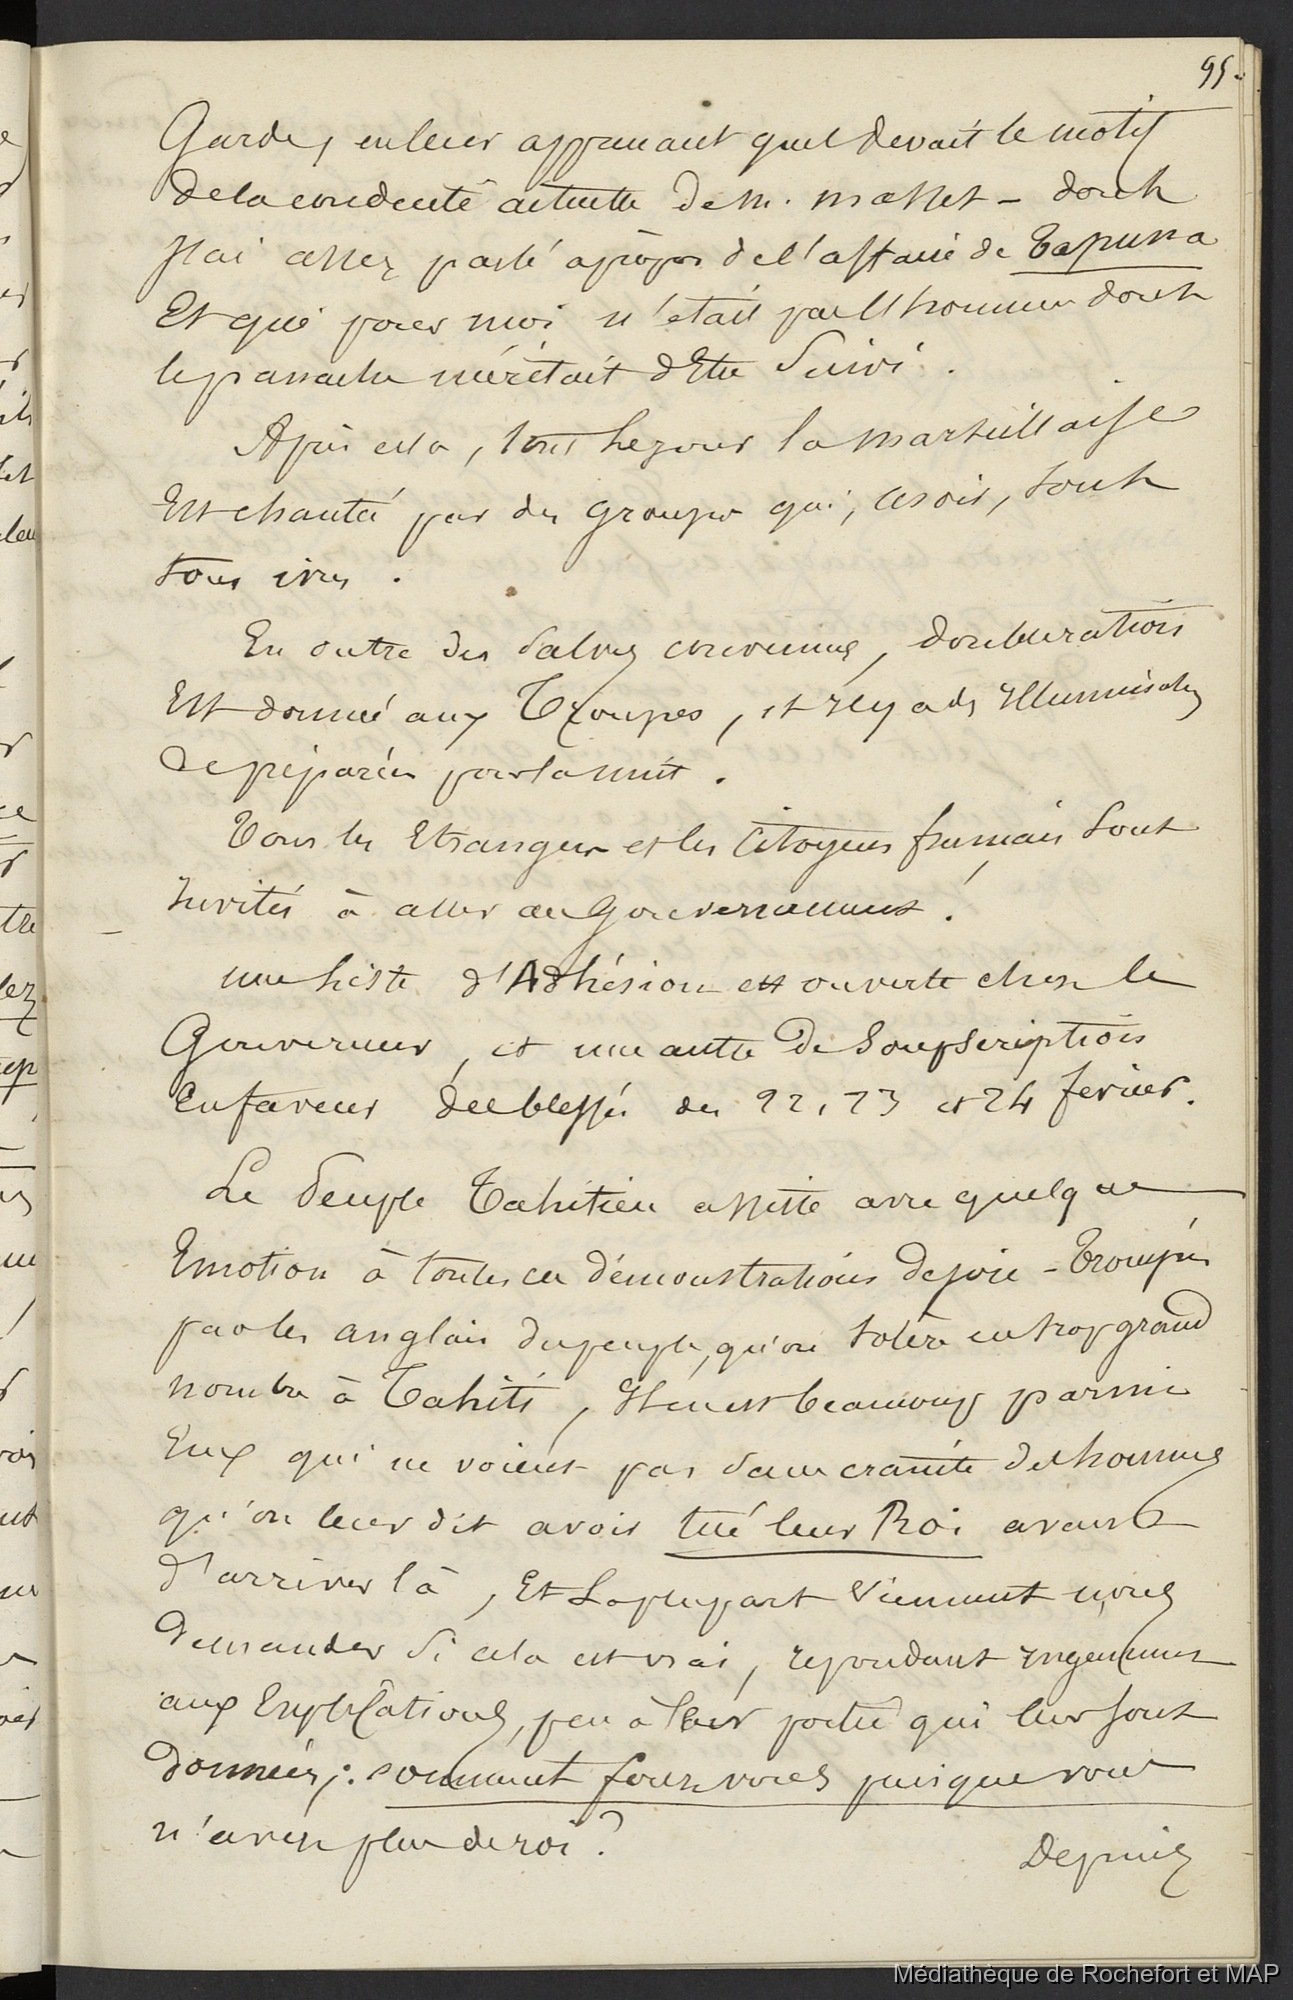 95.
Garde, en leur apprenant quel devait le motif
de la conduite actuelle de M. Masset - dont
j'ai assez parlé apropos de l'affaire de Tapuna
Et qui pour moi n'était pas l'homme dont
le panache méritait d'Etre Suivi.
Après cela, tout le jour la marseillaise
Est chantée par des groupes qui, ce soir, sont
tous ivres.
En outre des Salves convenues, double ration
Est donnée aux Troupes, et il y a des Illuminations
de préparées pour la nuit.
Tous les Etrangers et les Citoyens français sont
Invités à aller au Gouvernement.
une Liste d'Adhésion est ouverte chez le
Gouverneur, et une autre de Souscription
En faveur des blessés des 22, 23 et 24 fevrier.
Le Peuple Tahitien assiste avec quelque
Emotion à toutes ces démonstrations de joie - Trompés
par les anglais du peuple, qu'on tolère en trop grand
nombre à Tahiti, Il en est beaucoup parmi
Eux qui ne voient pas sans crainte des hommes
qu'on leur dit avoir tué leur Roi avant
d'arriver là, Et La plupart viennent nous
demander Si cela est vrai, repondant Ingenument
aux Explications, peu à leur portée qui leur sont
données; : comment ferez vous puisque vous
n'avez plus de roi ?
Depuis
Médiathèque de Rochefort et MAP